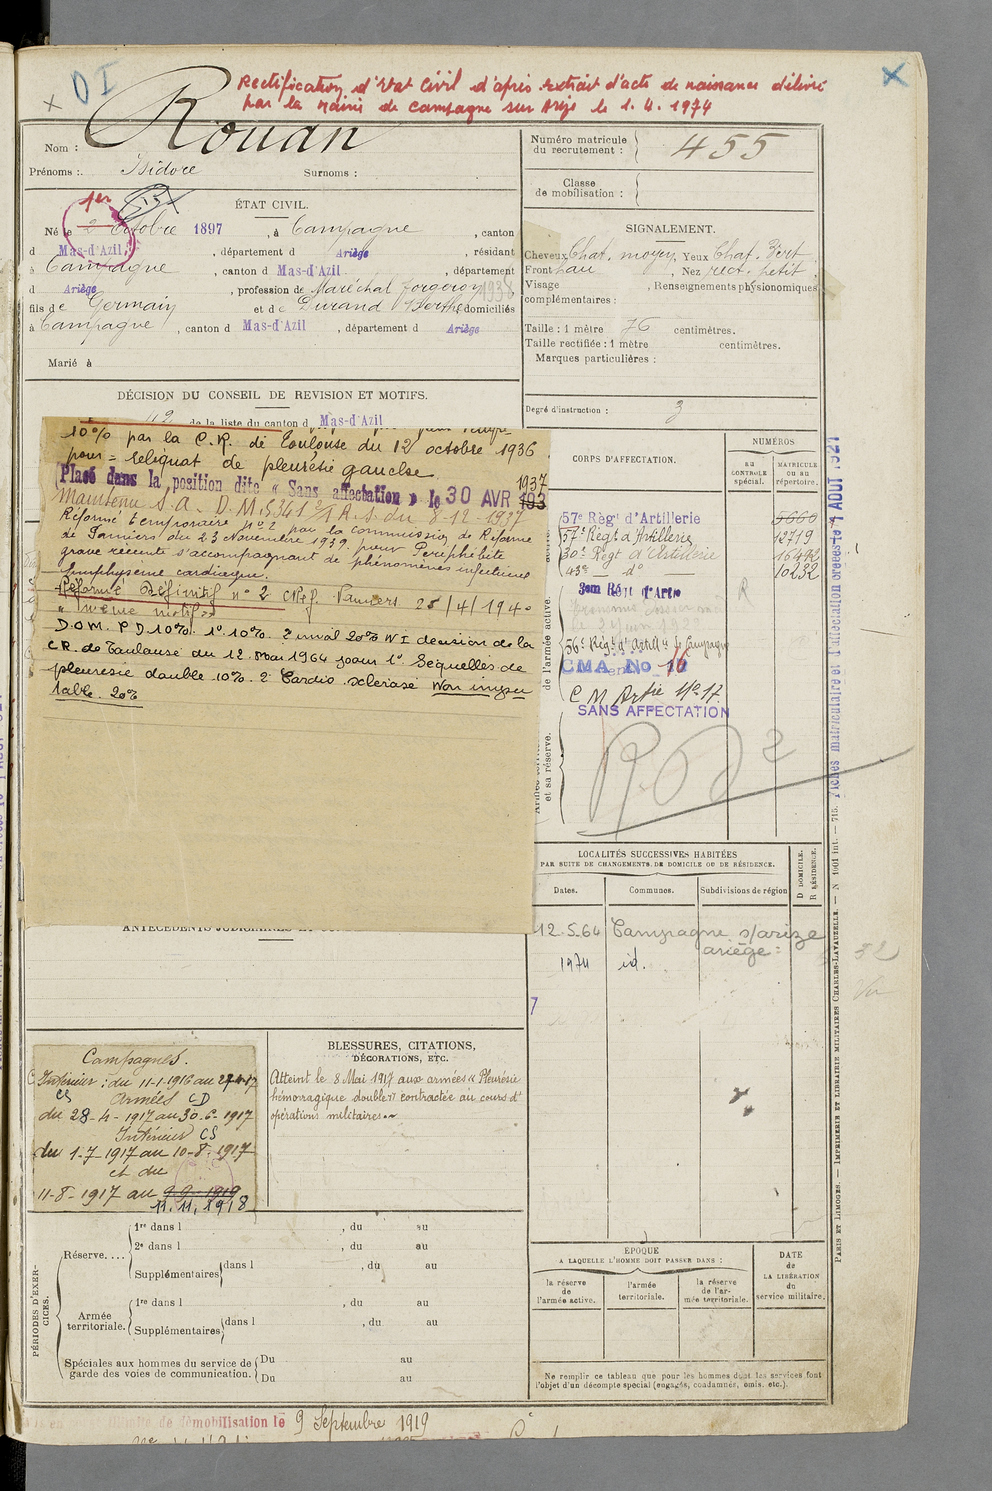 Rectification d'état civil d'après extrait d'acte de naissance délivré
par la mairie de Campagne sur Arize le 1. 4. 1974
DI
Nom : Rouan
Prénoms : Isidore Surnoms :
Numéro matricule du recrutement : 455
Classe de mobilisation :
ÉTAT CIVIL.
1er
Né le 2 Octobre 1897, à Campagne, canton
d Mas-d'Azil, département d Ariège, résidant
à Campagne, canton d Mas-d'Azil, département
d Ariège, profession de Maréchal forgeron
fils de Germain et de Durand Berthe domiciliés
à Campagne, canton d Mas-d'Azil, département d Ariège
Marié à
SIGNALEMENT.
Cheveux Chat. moyen, Yeux Chat. Vert
Front haut, Nez rect. petit,
Visage , Renseignements physionomiques
complémentaires :
Taille : 1 mètre 76 centimètres.
Taille rectifiée : 1 mètre centimètres.
Marques particulières :
Degré d'instruction : 3
DÉCISION DU CONSEIL DE REVISION ET MOTIFS.
de la liste du canton d Mas-d'Azil
10% par la C.R. de Toulouse du 12 octobre 1936
pour = reliquat de pleurésie gauche
Placé dans la position dite « Sans affectation » le 30 AVR 193
1937
Maintenu S.A. D.M. 5341 du 8-12-1937
Réformé temporaire N° 2 par la commission de Réforme
de Pamiers du 23 Novembre 1939. pour
grave récente s'accompagnant de phénomènes infectieux
emphysème cardiaque.
Réformé Définitif n° 2 C Réf. Pamiers 25/4/1940
" même motif "
D.O.M. P D 10%. 1° 10%. 2 inval 20% N I décision de la
C R. de Toulouse du 12 Mai 1964 pour 1° Séquelles de
pleurésie double 10%. 2 Cardio sclérose Non impu
table. 20%
CORPS D'AFFECTATION.
NUMÉROS
au CONTRÔLE spécial.
MATRICULE ou au répertoire.
57e Règt d'Artillerie 5660
57e Régt d'Artillerie 12719
30e Régt d'Artillerie 16492
43e d° 10232
3me Rég d'Artie
R
56e Régt d'Artillie de Campagne
CMA. No 16
C M Artie N° 17.
SANS AFFECTATION
de l'armée active.
et sa réserve.
R.D 2
LOCALITÉS SUCCESSIVES HABITÉES
PAR SUITE DE CHANGEMENTS DE DOMICILE OU DE RÉSIDENCE.
Dates. Communes. Subdivisions de région
D DOMICILE. R RÉSIDENCE.
12.5.64 Campagne s/arize
ariège :
1974 id.
7
52
Vu
Campagnes.
Intérieur : du 11-1-1916 au 27-4-17
Armées CD
CS
du 28-4-1917 au 30.6-1917
Intérieur CS
du 1-7 1917 au 10-8-1917
et du
11-8-1917 au 9 9-1919
11. 11. 1918
BLESSURES, CITATIONS,
DÉCORATIONS, ETC.
Atteint le 8 Mai 1917 aux armées « Pleurésie
hémorragique double » contractée au cours d'
opérations militaires.
PÉRIODES D'EXERCICES.
Réserve....
1re dans l , du au
2e dans l , du au
Supplémentaires dans l , du au
Armée territoriale.
1re dans l , du au
Supplémentaires dans l , du au
Spéciales aux hommes du service de
garde des voies de communication.
Du au
Du au
EPOQUE
A LAQUELLE L'HOMME DOIT PASSER DANS :
la réserve de l'armée active.
l'armée territoriale.
la réserve de l'armée territoriale.
DATE de LA LIBÉRATION du service militaire.
Ne remplir ce tableau que pour les hommes dont les services font
l'objet d'un décompte spécial (engagés, condamnés, omis. etc.).
de démobilisation le 9 Septembre 1919
PARIS ET LIMOGES. — IMPRIMERIE ET LIBRAIRIE MILITAIRES CHARLES-LAVAUZELLE. — N 1001 int. — 715.